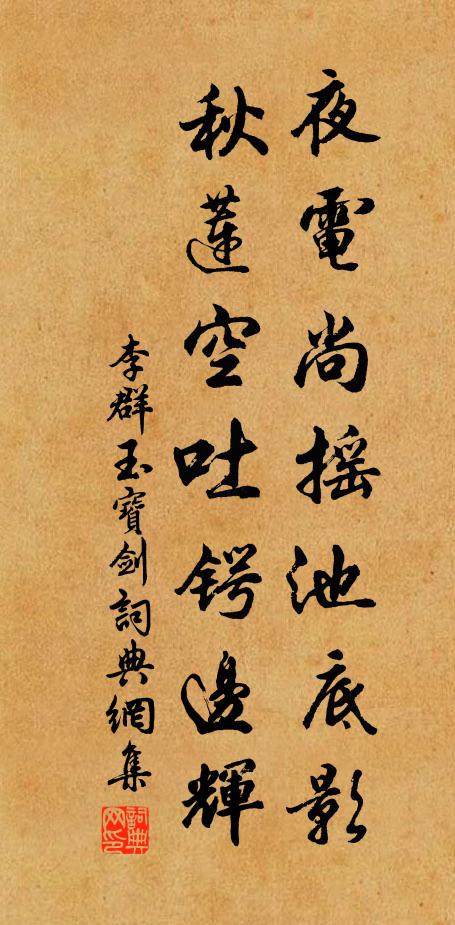 夜電尚搖池底影
秋蓮空吐鍔邊輝
李群玉寶劍詞典網集
詞典网印